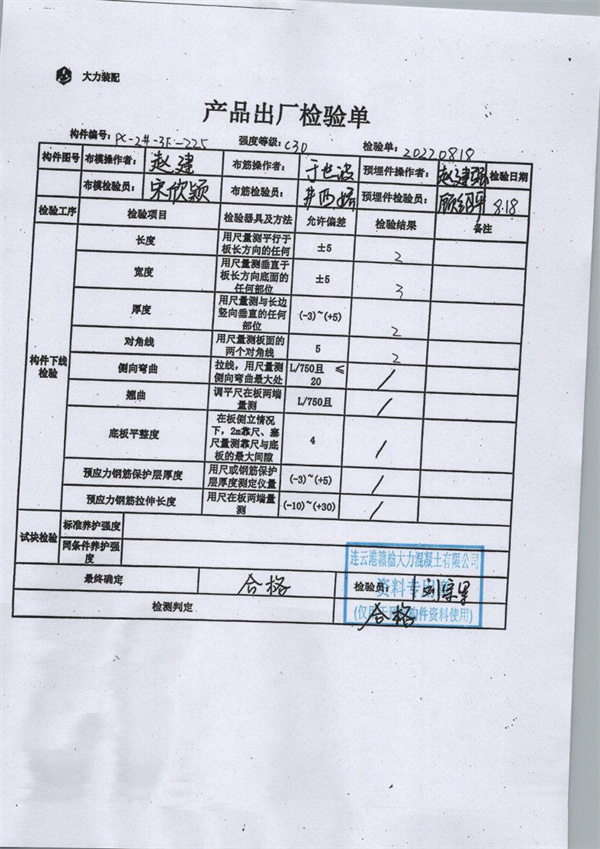 大力装配
产品出厂检验单
构件编号: PC-2#-3F-225 强度等级: C30 检验单: 20220818
构件图号 布模操作者: 赵建 布筋操作者: 于世波 预埋件操作者: 赵建强 检验日期
布模检验员: 宋欣颖 布筋检验员: 预埋件检验员: 8.18
检验工序 检验项目 检验器具及方法 允许偏差 检验结果 备注
构件下线检验
长度 用尺量测平行于板长方向的任何 ±5 2
宽度 用尺量测垂直于板长方向底面的任何部位 ±5 3
厚度 用尺量测与长边竖向垂直的任何部位 (-3)~(+5) 2
对角线 用尺量测板面的两个对角线 5 2
侧向弯曲 拉线，用尺量测侧向弯曲最大处 L/750且 ≤20 /
翘曲 调平尺在板两端量测 L/750且 /
底板平整度 在板侧立情况下，2m靠尺、塞尺量测靠尺与底板的最大间隙 4 /
预应力钢筋保护层厚度 用尺或钢筋保护层厚度测定仪量 (-3)~(+5) /
预应力钢筋拉伸长度 用尺在板两端量测 (-10)~(+30) /
试块检验 标准养护强度
同条件养护强度
连云港赣榆大力混凝土有限公司
资料专用章
最终确定 合格 检验员:
检测判定 合格
(仅用于 构件资料使用)